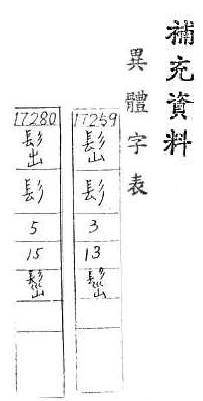 補充資料
異體字表
17259
髟
3
13
17280
髟
5
15